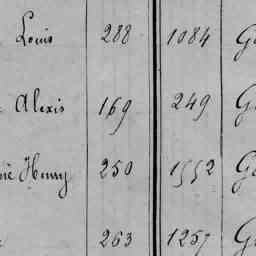 Louis 288 1084
Alexis 169 249
Henry 250 1552
263 1257